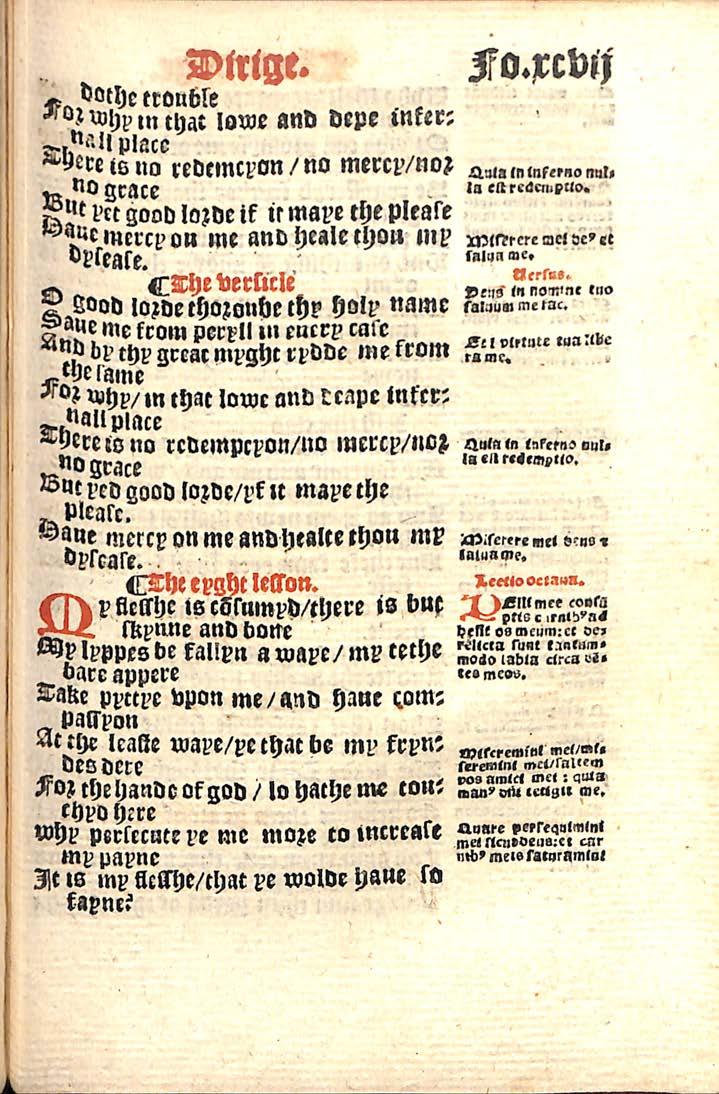 Dirige. Fo.xcvij
dothe trouble
For why in that lowe and depe infer-
nall place
There is no redempcyon / no mercy/nor
no grace
But yet good lorde if it maye the please
Haue mercy on me and heale thou my
dysease.
¶The versicle
O good lorde thoroughe thy holy name
Saue me from peryll in euery case
And by thy great myght rydde me from
the same
For why/ in that lowe and deape infer-
nall place
There is no redempcyon/no mercy/nor
no grace
But yed good lorde/yf it maye the
please.
Haue mercy on me and healte thou my
dysease.
¶The eyght lesson.
My flesshe is cōsumyd/there is but
skynne and bone
My lyppes be fallyn a waye / my tethe
bare appere
Take pyttye vpon me / and haue com-
passyon
At the leaste waye/ye that be my fryn-
des dere
For the hande of god / lo hathe me tou-
chyd here
why persecute ye me more to increase
my payne
It is my flesshe/that ye wolde haue so
fayne?
Quia in inferno nul-
la est redemptio.
Miserere mei deꝰ et
salua me.
Versus.
Deus in nomine tuo
saluum me fac.
Et i virtute tua libe
ra me.
Quia in inferno nul-
la est redemptio.
Miserere mei deus ⁊
salua me.
Lectio octaua.
PElli mee consū
ptis carnibꝰ ad
hesit os meum: et de-
relicta sunt tantum-
modo labia circa dē-
tes meos.
Miseremini mei/mi-
seremini mei/saltem
vos amici mei : quia
manꝰ dñi tetigit me.
Quare persequimini
mei sicut deus: et car
nibꝰ meis saturamini